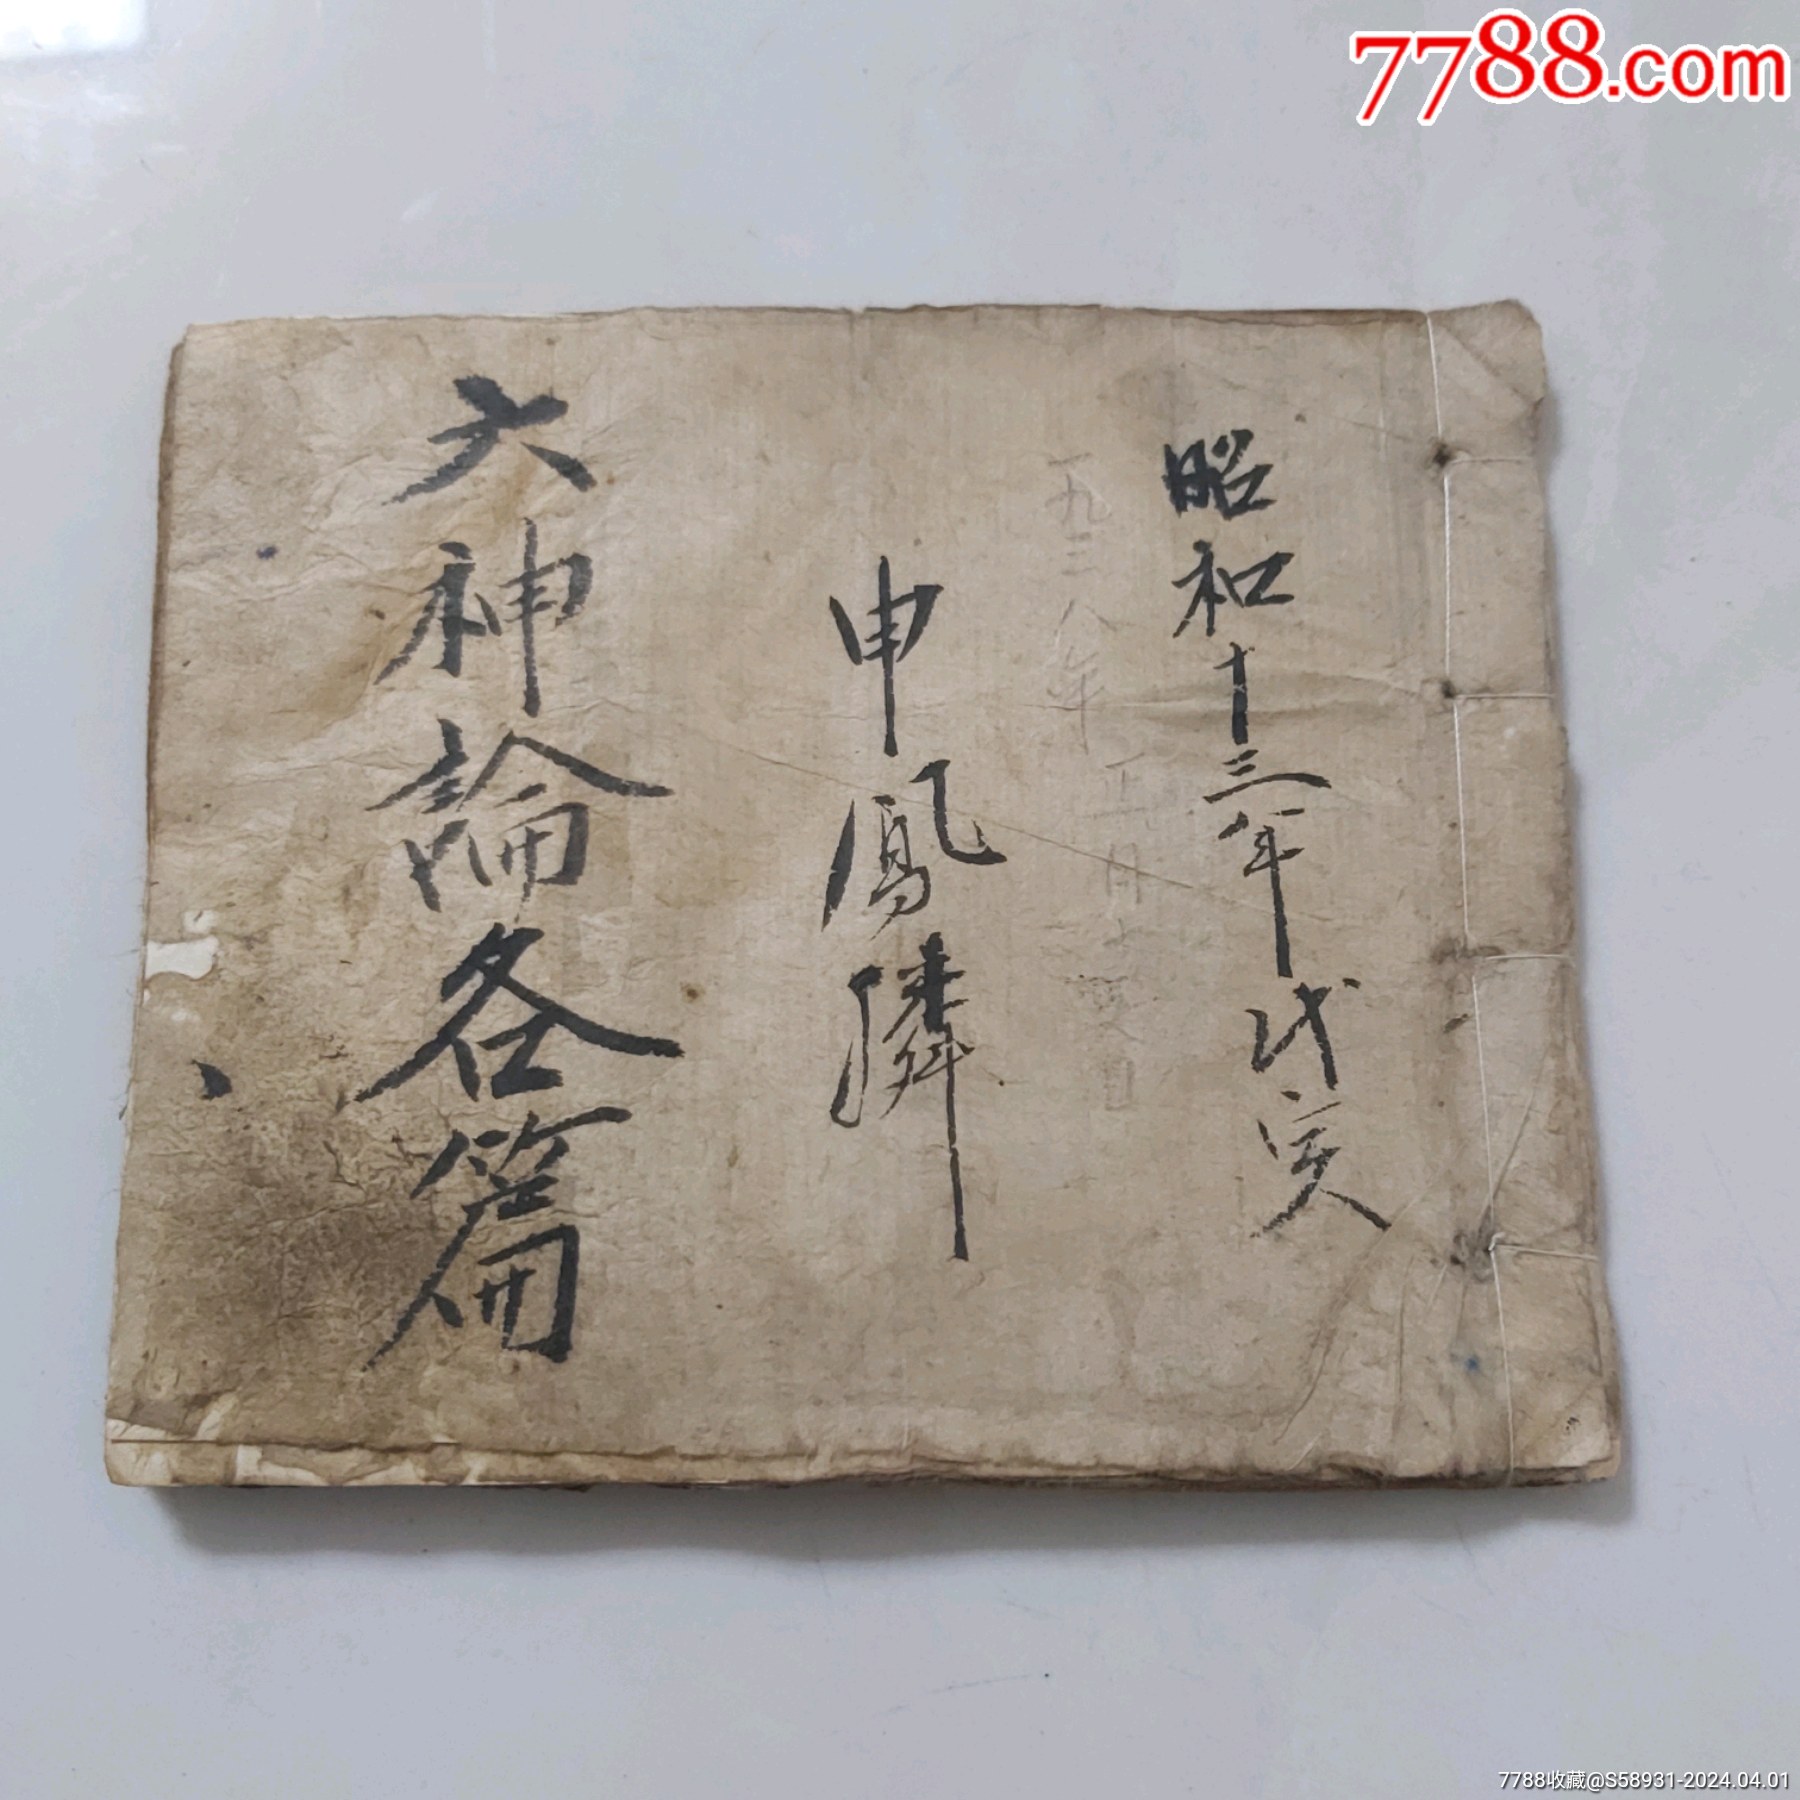 7788.com
昭和十三年戊寅
一九三八年
正月
申鳳隣
六神論各篇
7788收藏@S58931-2024.04.01